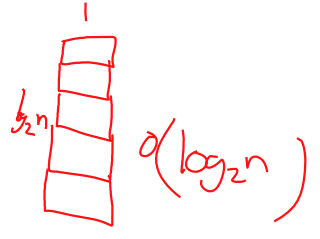 1
log₂n
O(log₂n)